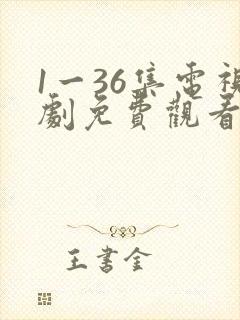 1一36集電視
劇免費觀看
王書金